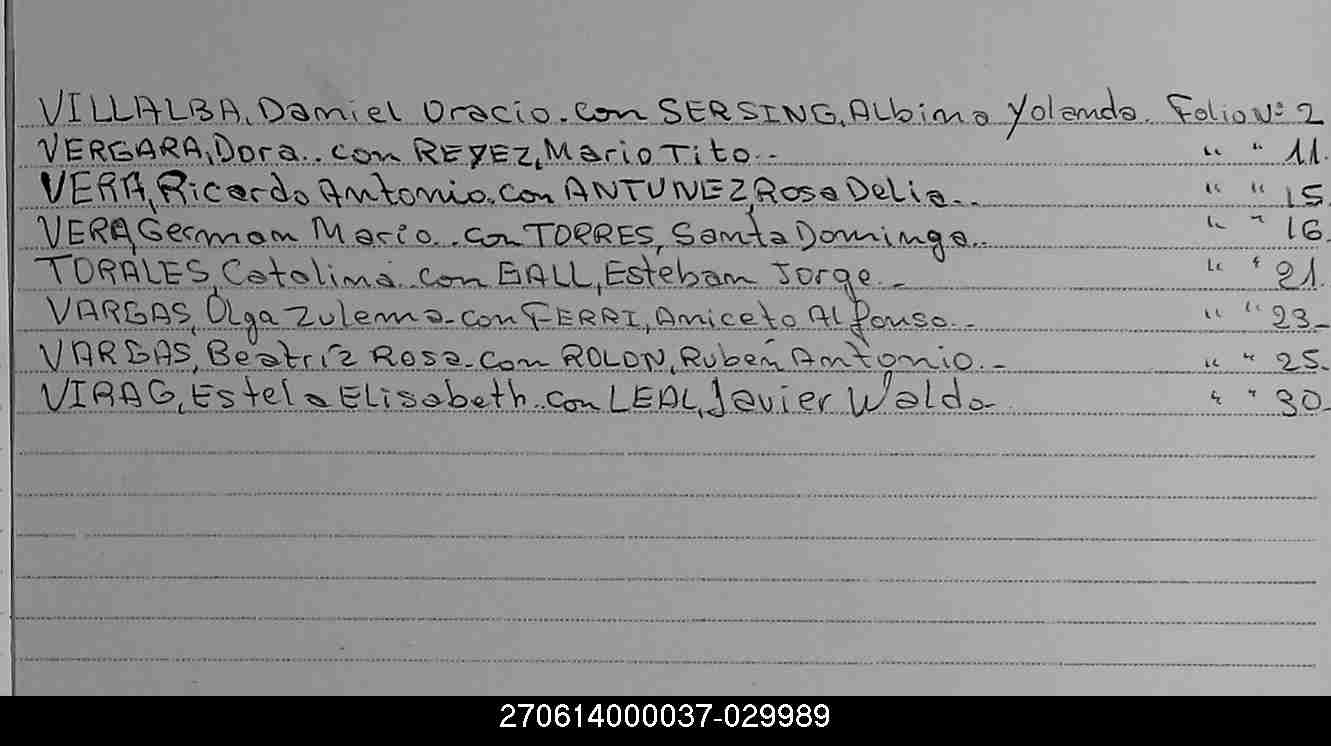 VILLALBA, Daniel Oracio. con SERSING, Albina Yolanda. Folio Nº 2
VERGARA, Dora.. con REYEZ, Mario Tito.- " " 11.
VERA, Ricardo Antonio. con ANTUNEZ, Rosa Delia.. " " 15.
VERA, German Mario.. con TORRES, Santa Dominga.. " " 16.
TORALES, Catalina. con GALL, Esteban Jorge.- " " 21.
VARGAS, Olga Zulema. con FERRI, Aniceto Alfonso.- " " 23.-
VARGAS, Beatriz Rosa. con ROLON, Ruben Antonio.- " " 25.
VIRAG, Estela Elisabeth. con LEAL, Javier Waldo- " " 30.
270614000037-029989